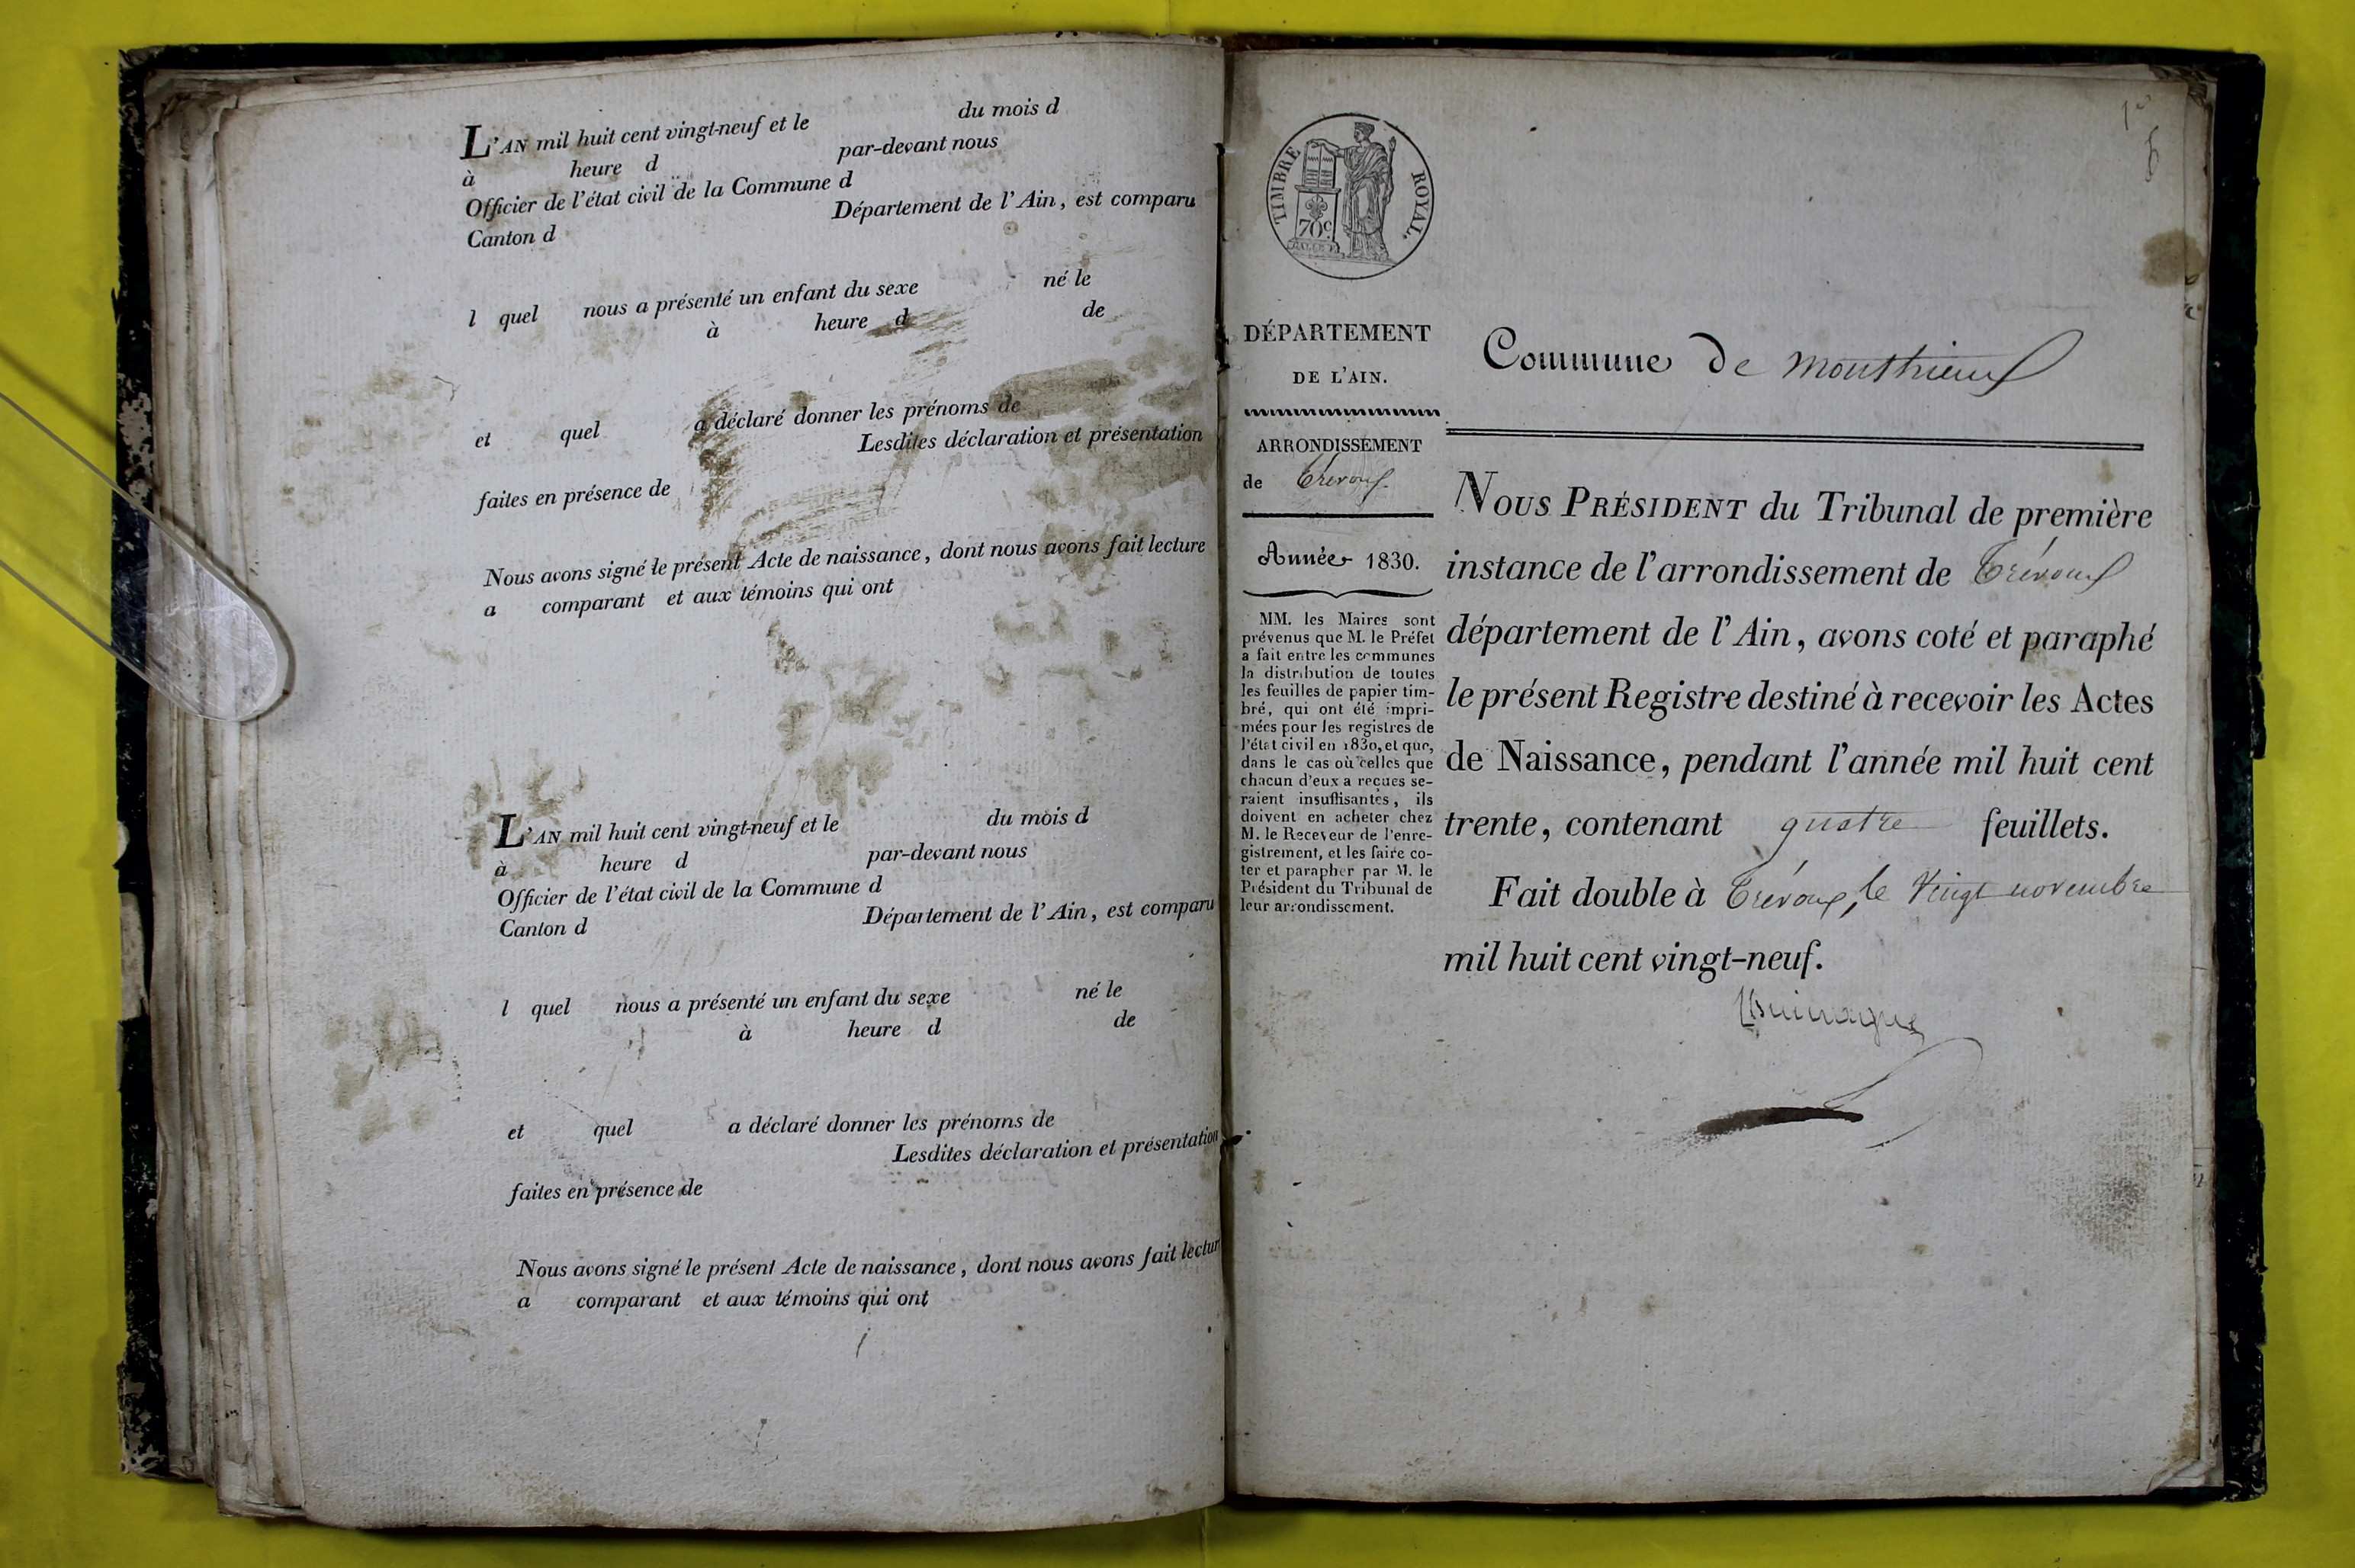 L'AN mil huit cent vingt-neuf et le du mois d
à heure d par-devant nous
Officier de l'état civil de la Commune d
Canton d Département de l'Ain, est comparu
l quel nous a présenté un enfant du sexe né le
à heure d de
et quel a déclaré donner les prénoms de
Lesdites déclaration et présentation
faites en présence de
Nous avons signé le présent Acte de naissance, dont nous avons fait lecture
a comparant et aux témoins qui ont
L'AN mil huit cent vingt-neuf et le du mois d
à heure d par-devant nous
Officier de l'état civil de la Commune d
Canton d Département de l'Ain, est comparu
l quel nous a présenté un enfant du sexe né le
à heure d de
et quel a déclaré donner les prénoms de
Lesdites déclaration et présentation
faites en présence de
Nous avons signé le présent Acte de naissance, dont nous avons fait lectur
a comparant et aux témoins qui ont
TIMBRE ROYAL.
70c
DÉPARTEMENT
DE L'AIN.
ARRONDISSEMENT
de Trévoux
Année 1830.
MM. les Maires sont
prévenus que M. le Préfet
a fait entre les communes
la distribution de toutes
les feuilles de papier tim-
bré, qui ont été impri-
mées pour les registres de
l'état civil en 1830, et que,
dans le cas où celles que
chacun d'eux a reçues se-
raient insuffisantes, ils
doivent en acheter chez
M. le Receveur de l'enre-
gistrement, et les faire co-
ter et parapher par M. le
Président du Tribunal de
leur arrondissement.
Commune de Monthieux
NOUS PRÉSIDENT du Tribunal de première
instance de l'arrondissement de Trévoux
département de l'Ain, avons coté et paraphé
le présent Registre destiné à recevoir les Actes
de Naissance, pendant l'année mil huit cent
trente, contenant quatre feuillets.
Fait double à Trévoux, le Vingt novembre
mil huit cent vingt-neuf.